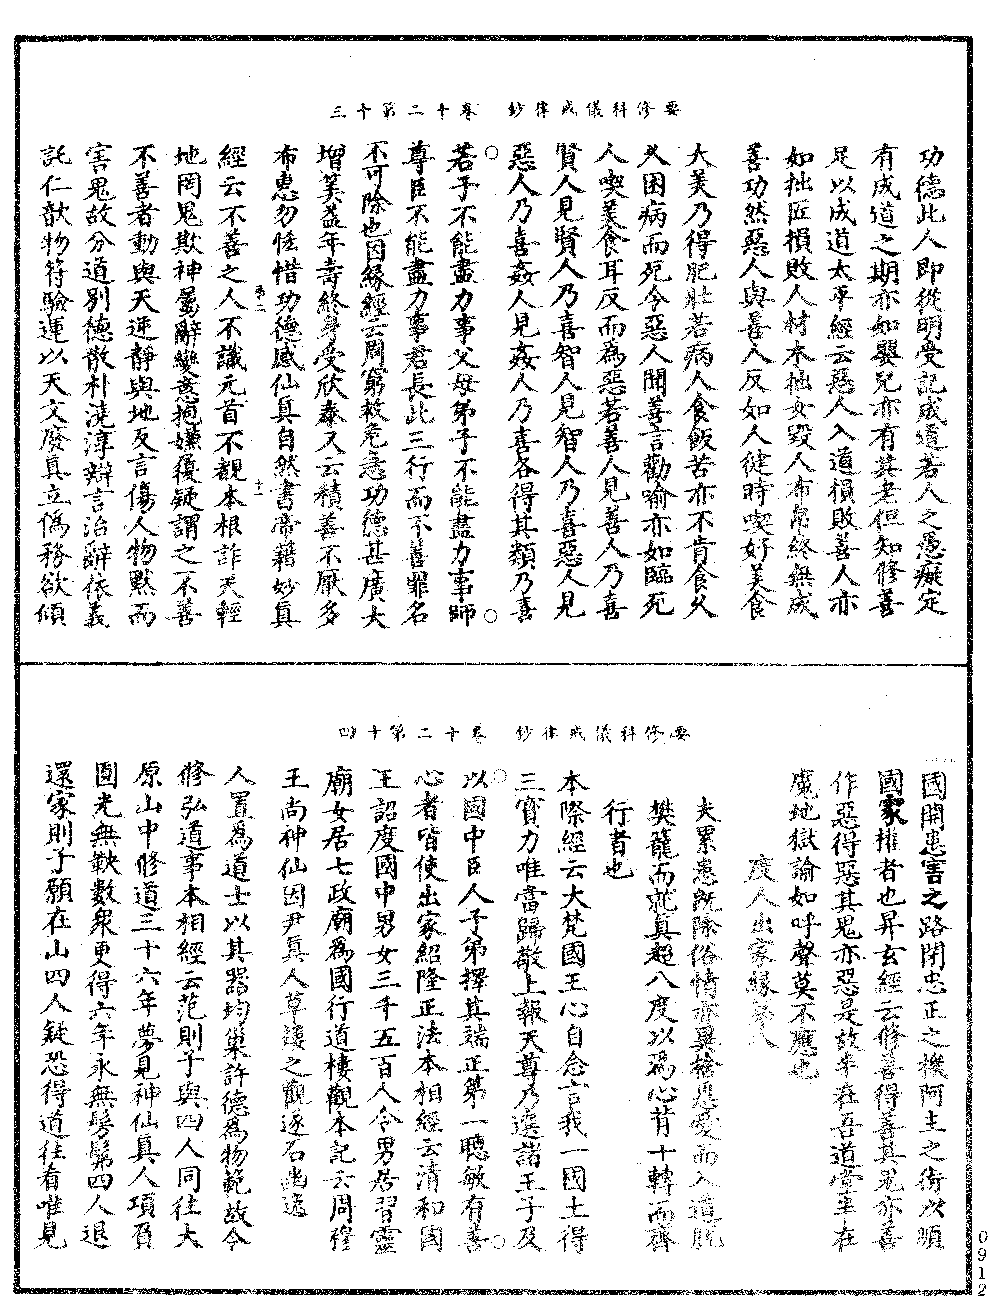 要修科儀戒律鈔　卷十二第十三
功德此人即從明受記成道若人之愚癡定
有成道之期亦如嬰兒亦有其老但知修善
足以成道太平經云惡人入道損敗善人亦
如拙匠損敗人材木拙女毀人布帛終無成
善功然惡人與善人反如人健時喫好美食
大美乃得肥壯若病人食飯苦亦不肯食久
久困病而死今惡人聞善言勸喻亦如臨死
人喫美食耳反而為惡若善人見善人乃喜
賢人見賢人乃喜智人見智人乃喜惡人見
惡人乃喜姦人見姦人乃喜各得其類乃喜
若子不能盡力事父母弟子不能盡力事師
尊臣不能盡力事君長此三行而不善罪名
不可除也因緣經云周窮救危急功德甚廣大
增筭益年壽終身受欣泰又云積善不厭多
布惠勿恡惜功德感仙真自然書帝籍妙真
經云不善之人不識元首不覩本根詐天輕
地罔鬼欺神屬辭變意抱嫌履疑謂之不善
不善者動與天逆靜與地反言傷人物默而
害鬼故分道別德散朴澆淳辯言治辭依義
託仁歕物符驗運以天文廢真立偽務欲傾
要修科儀戒律鈔　卷十二第十四
國開患害之路閉忠正之機阿主之銜以順
國家權者也昇玄經云修善得善其鬼亦善
作惡得惡其鬼亦惡是故半在吾道堂半在
魔地獄論如呼聲莫不應也
度人出家緣第八
夫累患既除俗情亦異捨恩愛而入道脫
樊籠而就真超八度以為心苻十轉而齊
行者也
本際經云大梵國王心自念言我一國土得
三寶力唯當歸敬上報天尊乃選諸王子及
以國中臣人子弟擇其端正第一聰敏有善
心者皆使出家紹隆正法本相經云清和國
王詔度國中男女三千五百人令男居習靈
廟女居七政廟為國行道樓觀本記云周穆
王尚神仙因尹真人草樓之觀遂召幽逸
人置為道士以其器均巢許德為物範故令
修弘道事本相經云范則子與四人同往大
原山中修道三十六年夢見神仙真人項負
圓光無鞅數衆更得六年永無髣髴四人退
還家則子願在山四人疑恐得道往看唯見
0912